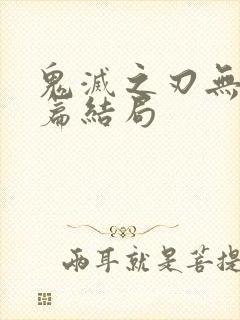 鬼滅之刃無
篇結局
兩耳就是菩提